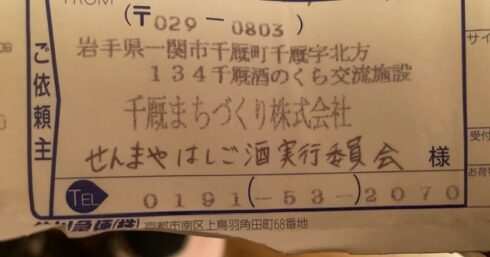 FROM
(〒029-0803)
ご依頼主
岩手県一関市千厩町千厩字北方
134千厩酒のくら交流施設
千厩まちづくり株式会社
せんまやはしご酒実行委員会 様
TEL 0191(-53-)2070
京都市南区上鳥羽角田町68番地
サイ
受付
お荷